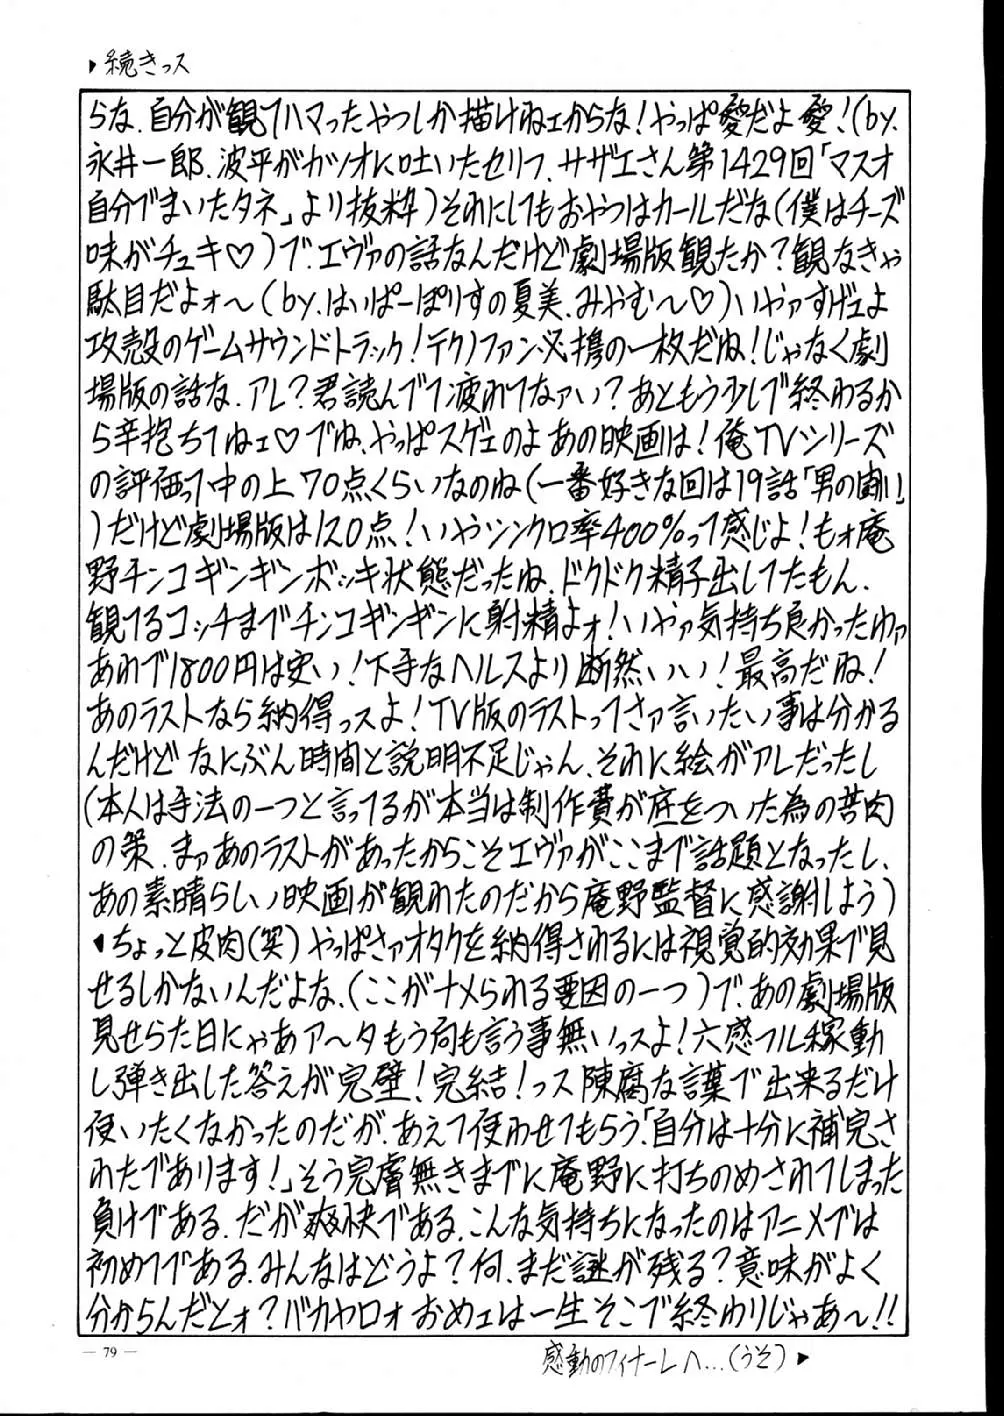 ▶続きっス
らな.自分が観てハマったやつしか描けねェからな!やっぱ愛だよ愛!(by.
永井一郎.波平がカツオに吐いたセリフ.サザエさん第1429回「マスオ
自分でまいたタネ」より抜粋)それにしてもおやつはカールだな(僕はチーズ
味がチュキ♡)で.エヴァの話なんだけど劇場版観たか?観なきゃ
駄目だよォ〜(by.はいぱーぽりすの夏美.みやむ〜♡)いやァすげェよ
攻殻のゲームサウンドトラック!テクノファン必携の一枚だね!じゃなく劇
場版の話な.アレ?君読んでて疲れてなァい?あともう少しで終わるか
ら辛抱ちてねェ♡でね.やっぱスゲェのよあの映画は!俺TVシリーズ
の評価って中の上70点くらいなのね(一番好きな回は19話「男の闘い」
)だけど劇場版は120点!いやシンクロ率400%って感じよ!もォ庵
野チンコギンギンボッキ状態だったね.ドクドク精子出してたもん.
観てるコッチまでチンコギンギンに射精よォ!いやァ気持ち良かったわァ
あれで1800円は安い!下手なヘルスより断然いい!最高だね!
あのラストなら納得っスよ!TV版のラストってさァ言いたい事は分かる
んだけどなにぶん時間と説明不足じゃん.それに絵がアレだったし
(本人は手法の一つと言ってるが本当は制作費が底をついた為の苦肉
の策.まァあのラストがあったからこそエヴァがここまで話題となったし.
あの素晴らしい映画が観れたのだから庵野監督に感謝しよう)
▼ちょっと皮肉(笑)やっぱさァオタクを納得されるには視覚的効果で見
せるしかないんだよな.(ここがナメられる要因の一つ)で.あの劇場版
見せらた日にゃあア〜タもう何も言う事無いっスよ!六感フル稼動
し弾き出した答えが完璧!完結!っス陳腐な言葉で出来るだけ
使いたくなかったのだが.あえて使わせてもらう「自分は十分に補完さ
れたであります!」そう完膚無きまでに庵野に打ちのめされてしまった
負けである.だが爽快である.こんな気持ちになったのはアニメでは
初めてである.みんなはどうよ?何.まだ謎が残る?意味がよく
分からんだとォ?バカヤロォおめェは一生そこで終わりじゃあ〜!!
— 79 —
感動のフィナーレへ…(うそ)▶